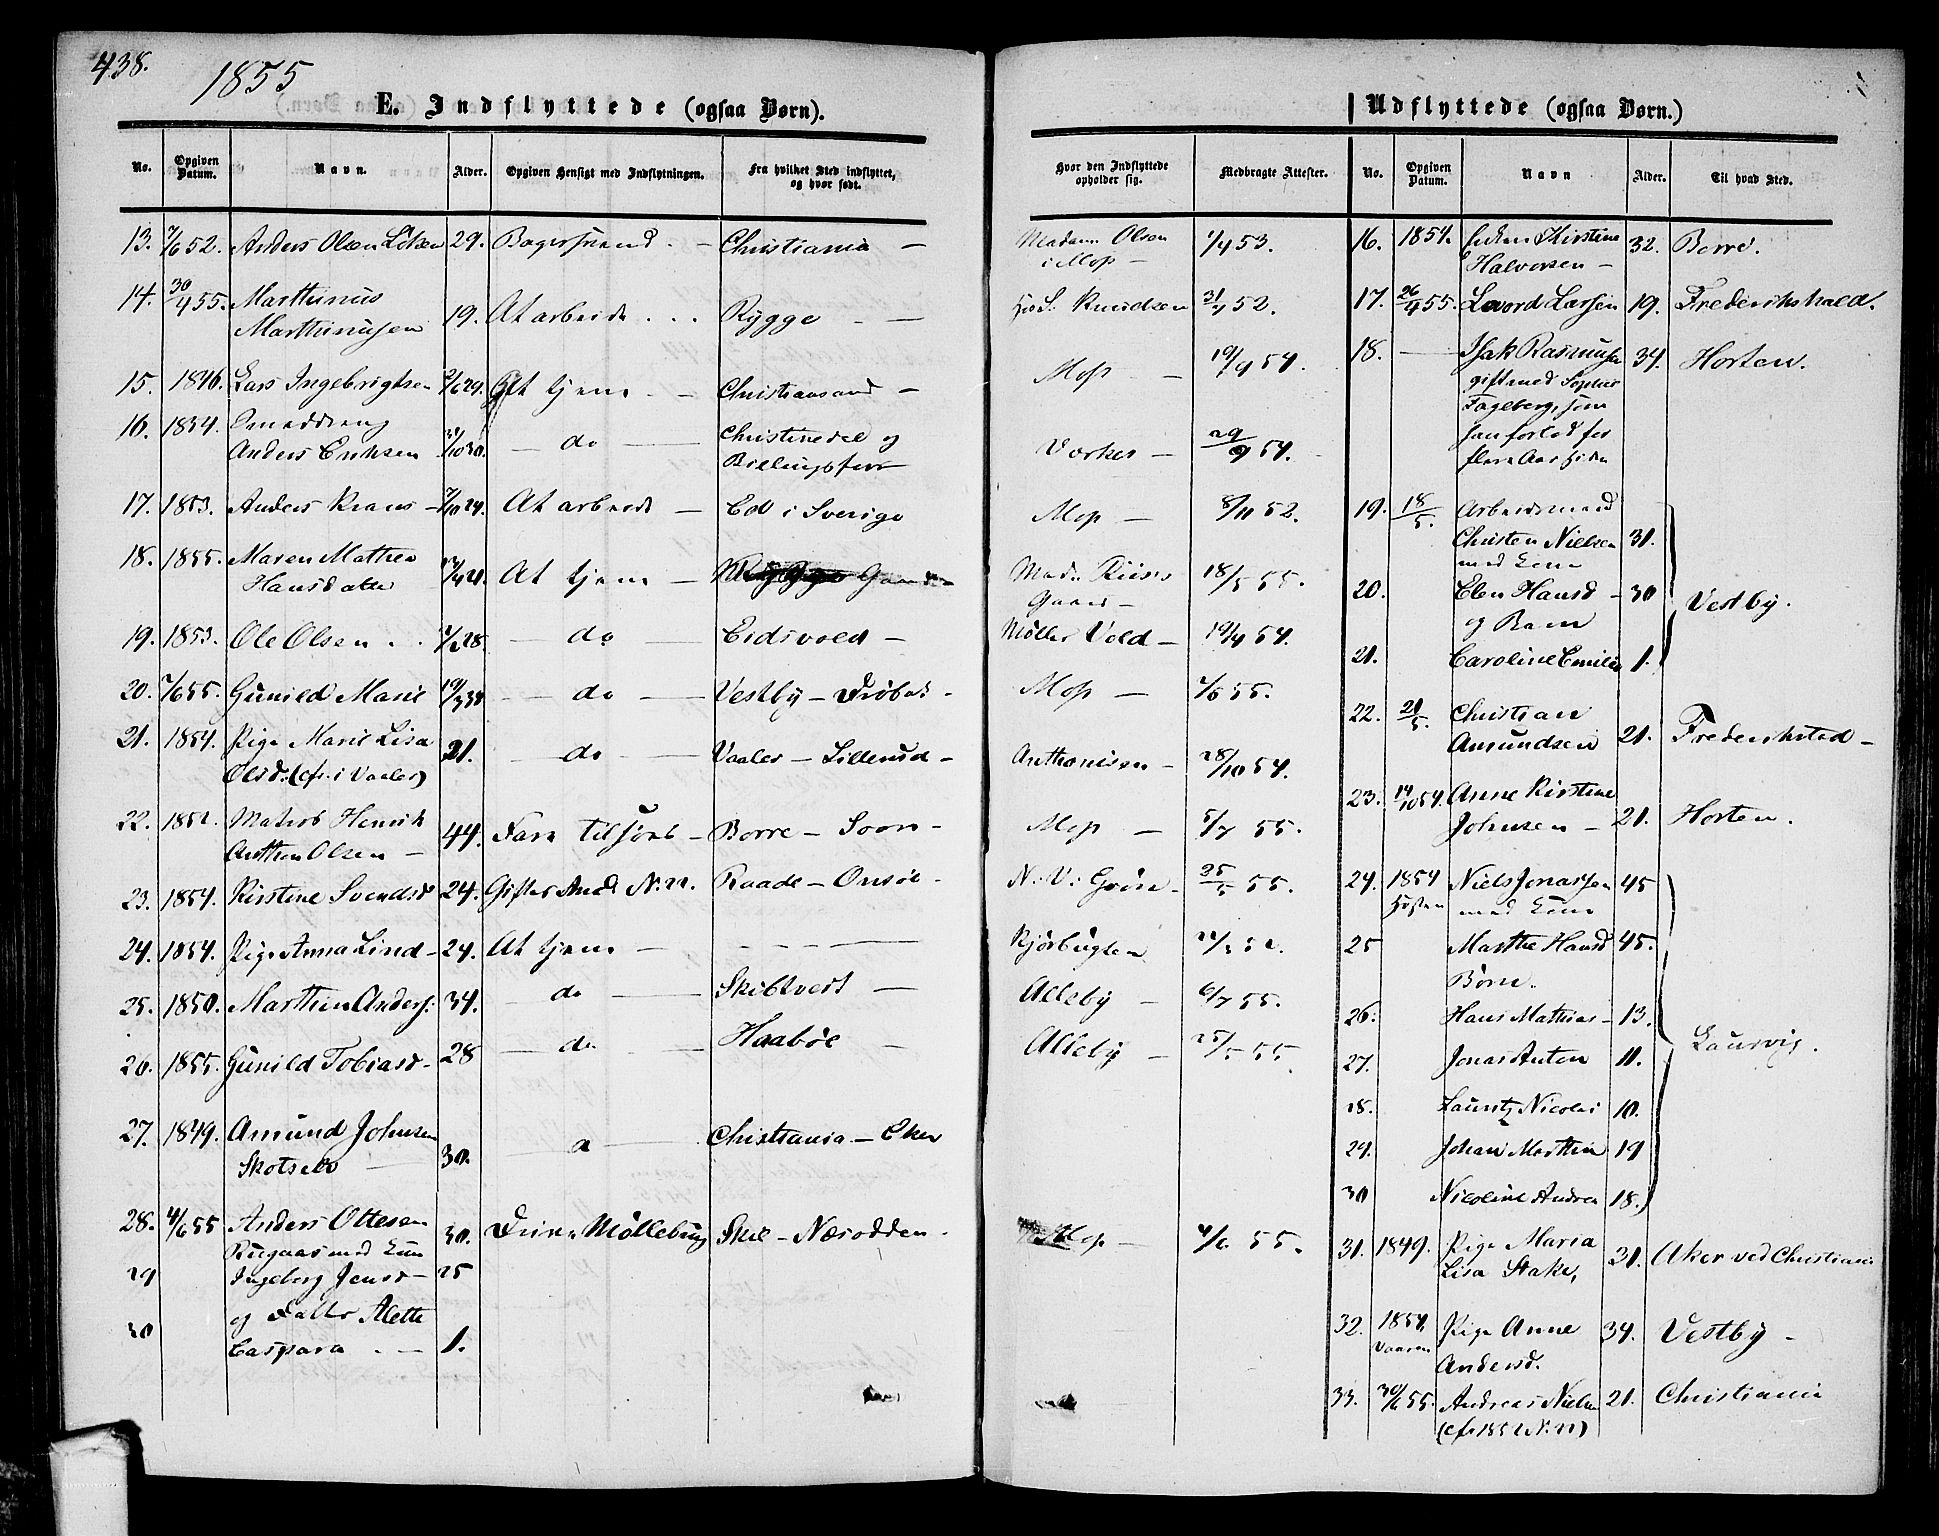 438.
1855
E. Indflyttede (ogsaa Børn).
No. Opgiven Datum. Navn. Alder. Opgiven Hensigt med Indflytningen. Fra hvilket Sted indflyttet, og hvor født.
13. 7/6 52. Anders Olsen 29. Christiania —
14. 30/4 55. Marthinus
Marthinusen 19. At arbeide . . . Rygge — —
15. 1846. Lars Ingebrigtsen 29. At tjene . — Christiansand —
16. 1834.
Anders Eriksen — do — Christinedal og
17. 1853. Anders Kraus — 24. At arbeide — Ed i Sverige
18. 1855. Maren Mathea
Hansdatter At tjene —
19. 1853. Ole Olsen . . 28. — do — Eidsvold —
20. 7/6 55. Gunild Marie — do — Vestby —
21. 1854. Pige Marie Lisa
Olsd. (cfr. i Vaaler) 21. — do — Vaaler — Lillerud —
22. Matros Henrik
Anthon Olsen — 44. Fare tilsøes — Borre — Soon —
23. 1854. Kirstine Svendsd 24. Giftes med N. 22. Raade — Onsøe —
24. 1854. Pige Anna Lind — 24. At tjene —
25. 1850. Marthin Anders: 34. — do — Skibtvedt —
26. 1855. Gunild Tobiasd — 28 — do — Haabøe —
27. 1849. Amund Johnsen
30. Christiania — Eker
28. 4/6 55 Anders Ottesen 30. Møllebrug — Næsodden .
med Kone
29 Ingeborg Jensd — 25
30 og Datter Alette
Caspara . — 1.
Udflyttede (ogsaa Børn.)
Hvor den Indflyttede opholder sig. Medbragte Attester. No. Opgiven Datum. Navn Alder. Til hvad Sted.
Madam Olsen
i Moss — 53. 16. 1854. Kirstine
Halvorsen — 32. Borre.
Hos S. Knudsen 52. 17. 26/4 55. Larsen 19. Frederikshald.
Moss — 19/9 54. 18. — Isak Rasmusen 34. Horten.
gift med Sophie
Fageberg, som
han forlod for
flere Aar siden
Værket — 29/9 54.
Moss — 8/11 52. 19. 18/5. Arbeidsmand
Christen Nielsen 31.
med Kone
Gaard — 18/5 55. 20. Elen Hansd — 30 Vestby.
og Barn
Møller Vold — 19/4 54. 21. Caroline Emilie 1.
Moss — 55. 22. 21/5. Christian
Amundsen 21. Frederikstad —
Anthonisen — 28/10 54. 23. 14/10 54. Anne Kirstine
Johnsen — 21. Horten.
Moss — 5/7 55.
N: V: Grøn — 25/5 55. 24. 1854 Niels Jonassen 45
Høsten med Kone
Kjørbugten 25 Marthe Hansd 45.
Børn.
Alleby — 6/7 55. 26. Hans Mathias — 13.
Alleby — 25/5 55. 27. Jonas Anton 11. Laurvig.
28. Lauritz Nicolai 10.
29. Johan Marthin 19
30 Nicoline Andrea 18.
Moss — 4/6 55. 31. 1849. Pige Maria
Lisa Stake, 31. Aker ved Christiania
32. 1854. Pige Anne 34. Vestby —
Vaaren Andersd.
33. 30/6 55. Andreas Nielsen 21. Christiania